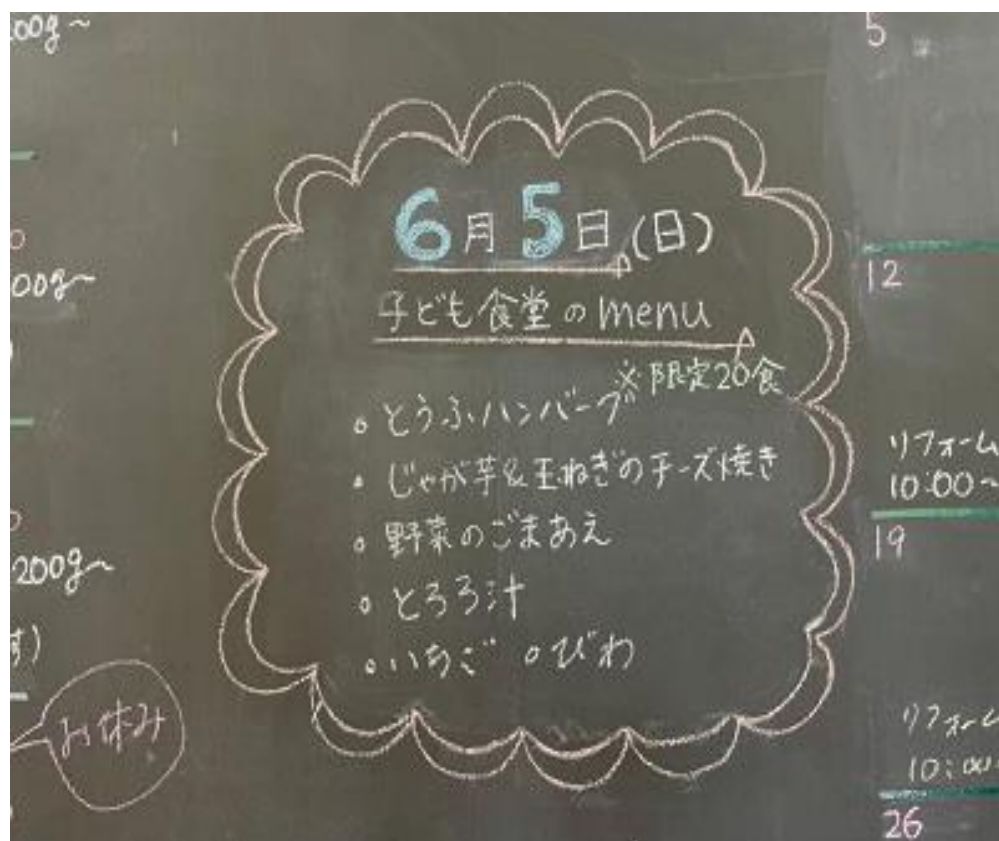 00g~
00g~
200g~
す)
お休み
6月5日(日)
子ども食堂のmenu
※限定20食
。とうふハンバーグ
。じゃが芋&玉ねぎのチーズ焼き
。野菜のごまあえ
。とろろ汁
。いちご 。びわ
5
12
リフォーム
10:00~
19
リフォーム
10:00~
26